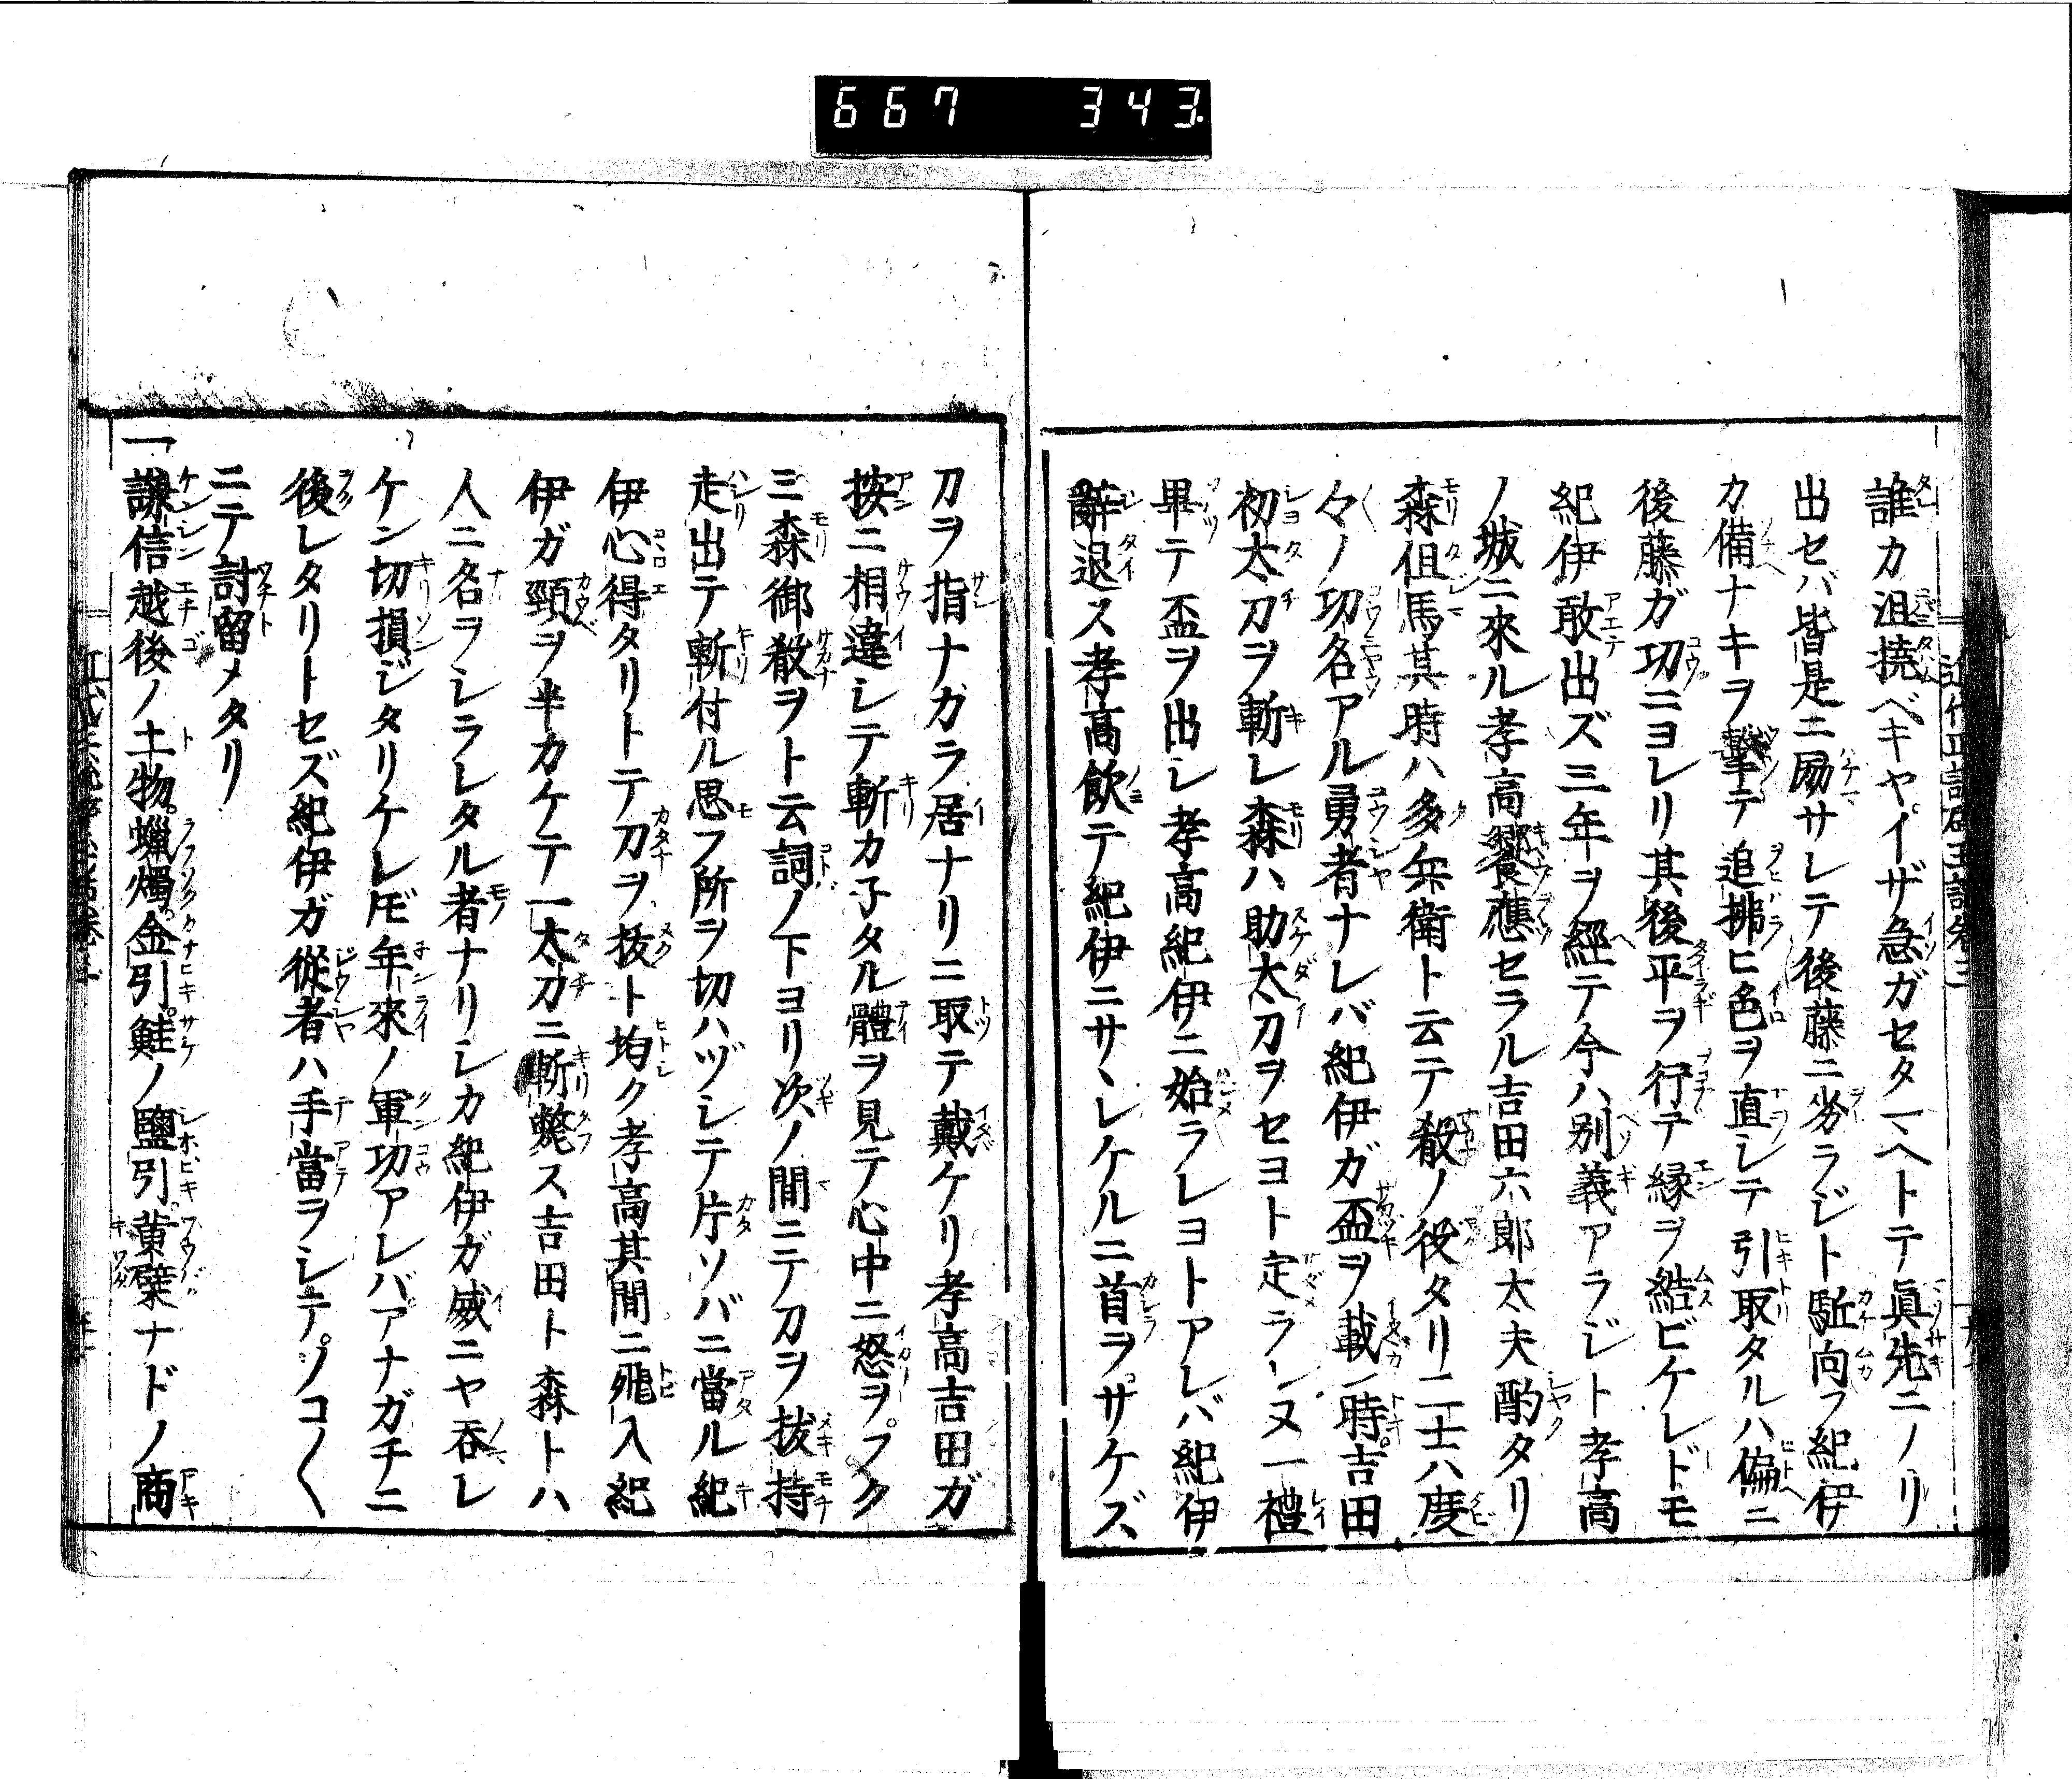 667 343
誰カ沮撓ベキヤイザ急ガセタマヘトテ眞先ニノリ
出セバ皆是ニ励サレテ後藤ニ劣ラジト駈向フ紀伊
カ備ナキヲ撃テ追拂ヒ色ヲ直シテ引取タルハ偏ニ
後藤ガ功ニヨレリ其後平ヲ行テ縁ヲ結ビケレドモ
紀伊敢出ズ三年ヲ經テ今ハ別義アラジト孝高
ノ城ニ來ル孝高饗應セラル吉田六郎太夫酌タリ
森但馬其時ハ多兵衛ト云テ殽ノ役タリ二士六度
々ノ功名アル勇者ナレバ紀伊ガ盃ヲ載時吉田
初太刀ヲ斬レ森ハ助太刀ヲセヨト定ラレヌ一禮
畢テ盃ヲ出シ孝高紀伊ニ始ラレヨトアレバ紀伊
辭退ス孝高飲テ紀伊ニサヽレケルニ首ヲサケズ
刀ヲ指ナガラ居ナリニ取テ戴ケリ孝高吉田ガ
按ニ相違シテ斬カ子タル體ヲ見テ心中ニ怒ヲフク
ミ森御殽ヲト云詞ノ下ヨリ次ノ間ニテ刀ヲ抜持
走出テ斬付ル思フ所ヲ切ハヅシテ片ソバニ當ル紀
伊心得タリトテ刀ヲ抜ト均ク孝高其間ニ飛入紀
伊ガ頸ヲ半カケテ一太刀ニ斬斃ス吉田ト森トハ
人ニ名ヲシラレタル者ナリシカ紀伊ガ威ニヤ呑レ
ケン切損ジタリケレ𪜈年來ノ軍功アレバアナガチニ
後レタリトセズ紀伊ガ從者ハ手當ヲシテソコ〱
ニテ討留メタリ
一謙信越後ノ土物蠟燭金引鮭ノ鹽引黄檗ナドノ商